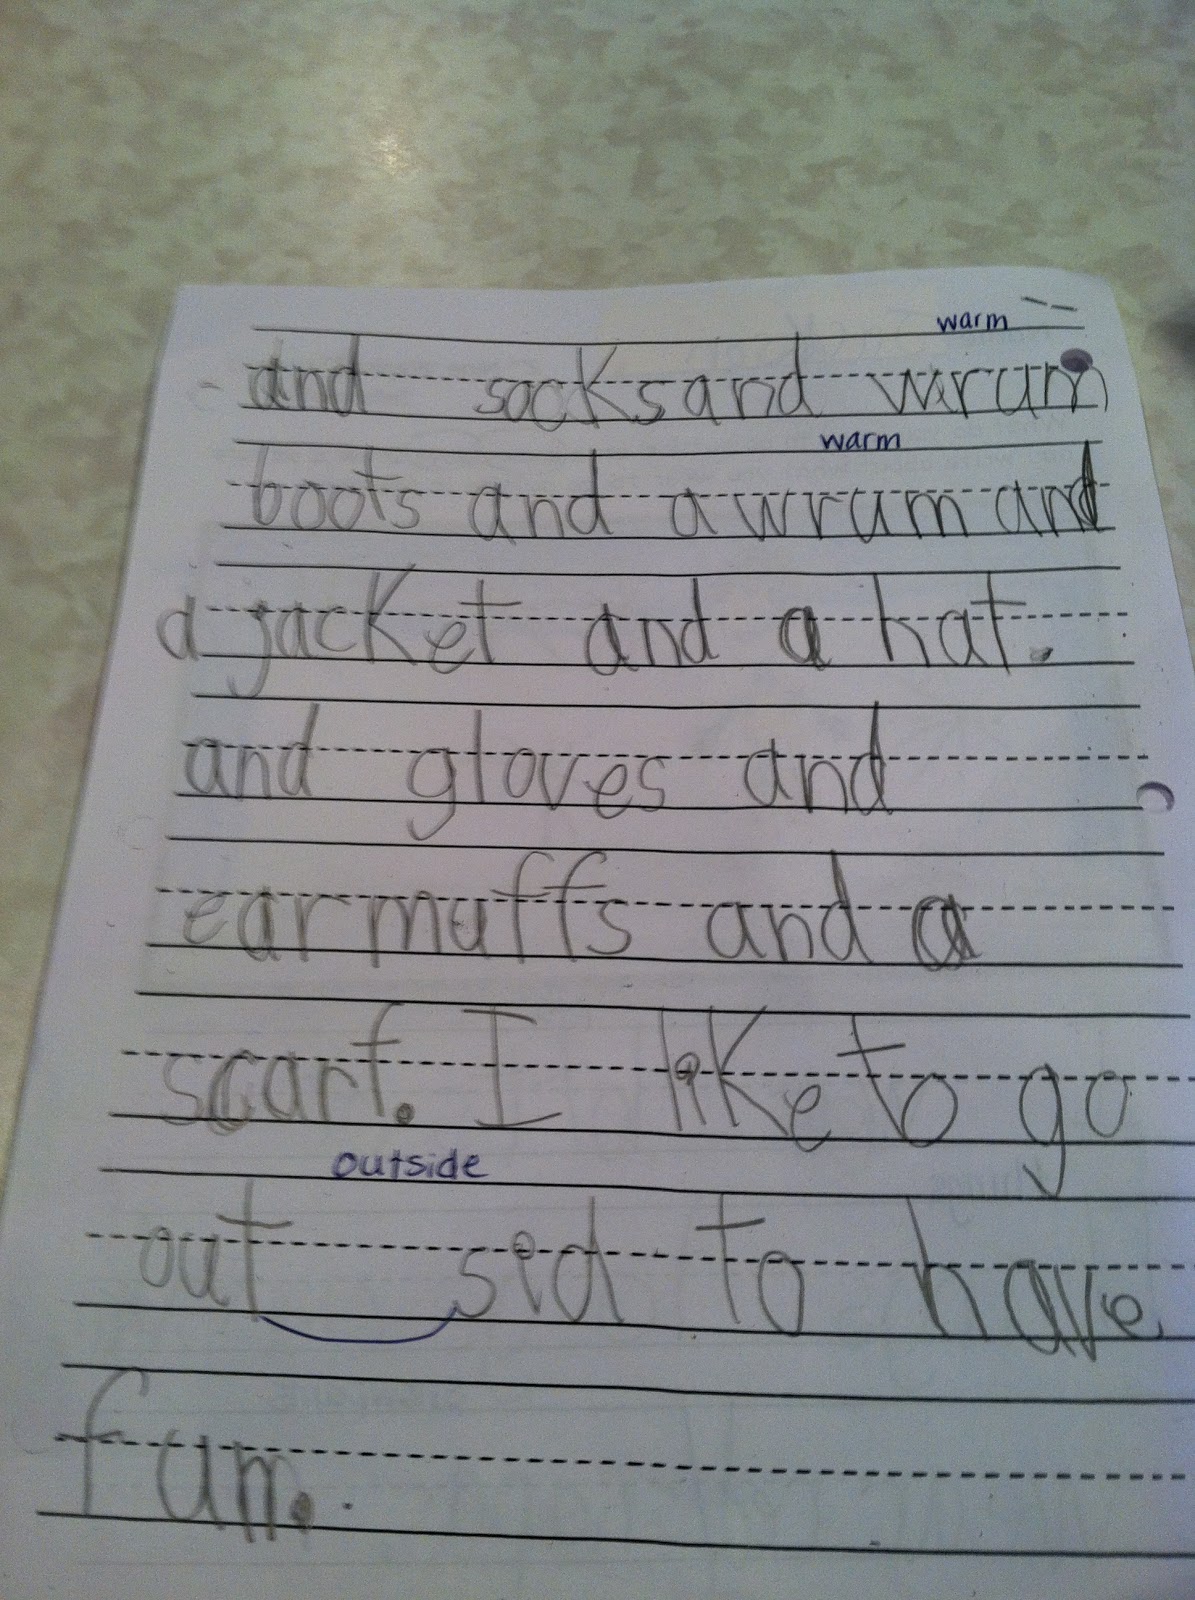 warm
and socks and wrum
warm
boots and a wrum and
a jacket and a hat.
and gloves and
earmuffs and a
scarf. I like to go
outside
out sed to have
fun.